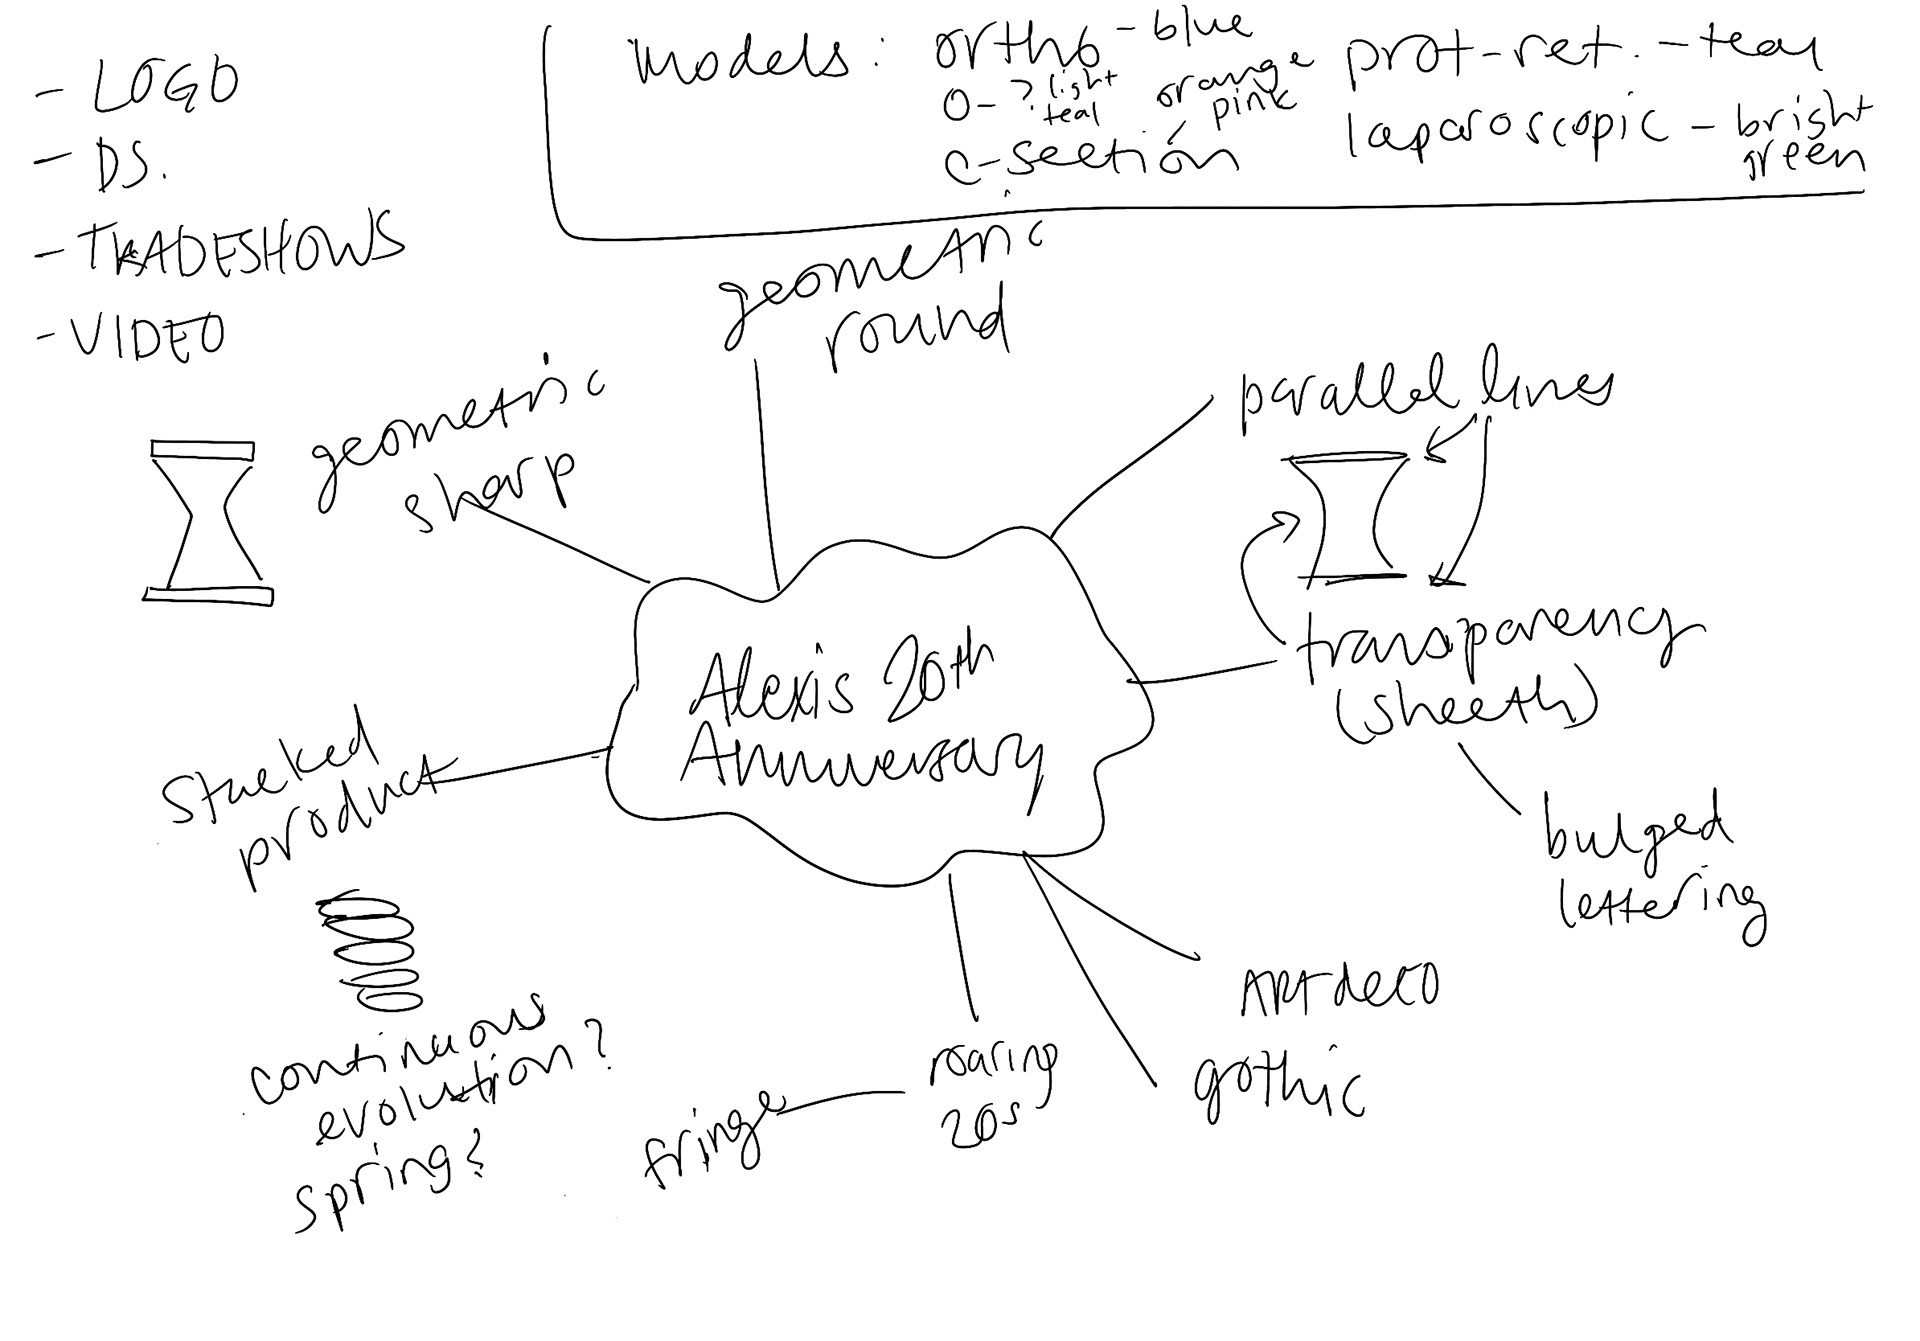 - LOGO
- DS.
- TRADESHOWS
- VIDEO
models: ortho - blue
O- ? light teal
orange pink
c-section
prot-ret. - teal
laparoscopic - bright green
geometric
round
geometric
sharp
parallel lines
transparency
(sheeth)
bulged
lettering
Alexis 20th
Anniversary
Stacked
product
continuous
evolution?
spring?
fringe
roaring
20s
ARTdeco
gothic